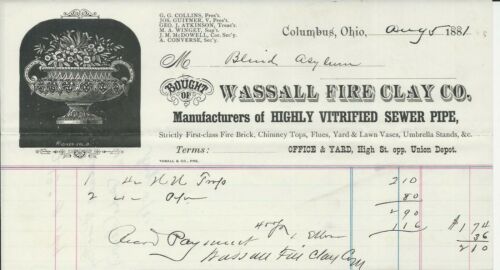 G. G. COLLINS, Pres't.
JOS. GUITNER, V. Pres't.
GEO. J. ATKINSON, Treas'r.
M. A. WINGET, Sup't.
J. M. McDOWELL, Cor. Sec'y.
A. CONVERSE, Sec'y.
Columbus, Ohio, Aug 5 1881
M Blind Asylum
BOUGHT OF
WASSALL FIRE CLAY CO.
Manufacturers of HIGHLY VITRIFIED SEWER PIPE,
Strictly First-class Fire Brick, Chimney Tops, Flues, Yard & Lawn Vases, Umbrella Stands, &c.
Terms: OFFICE & YARD, High St. opp. Union Depot.
1 4 in Traps 210
2 4 in 80
290
116 $ 174
Payment 36
Wassall Fire Clay Co 210